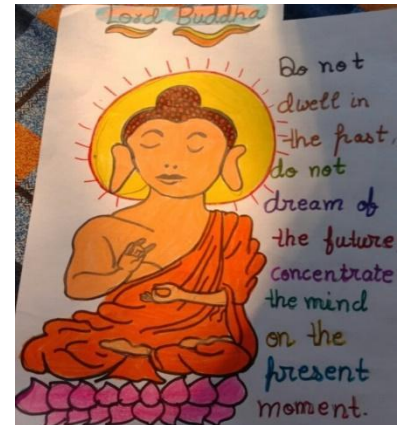 Lord Buddha
Do not
dwell in
the past,
do not
dream of
the future
concentrate
the mind
on the
present
moment.